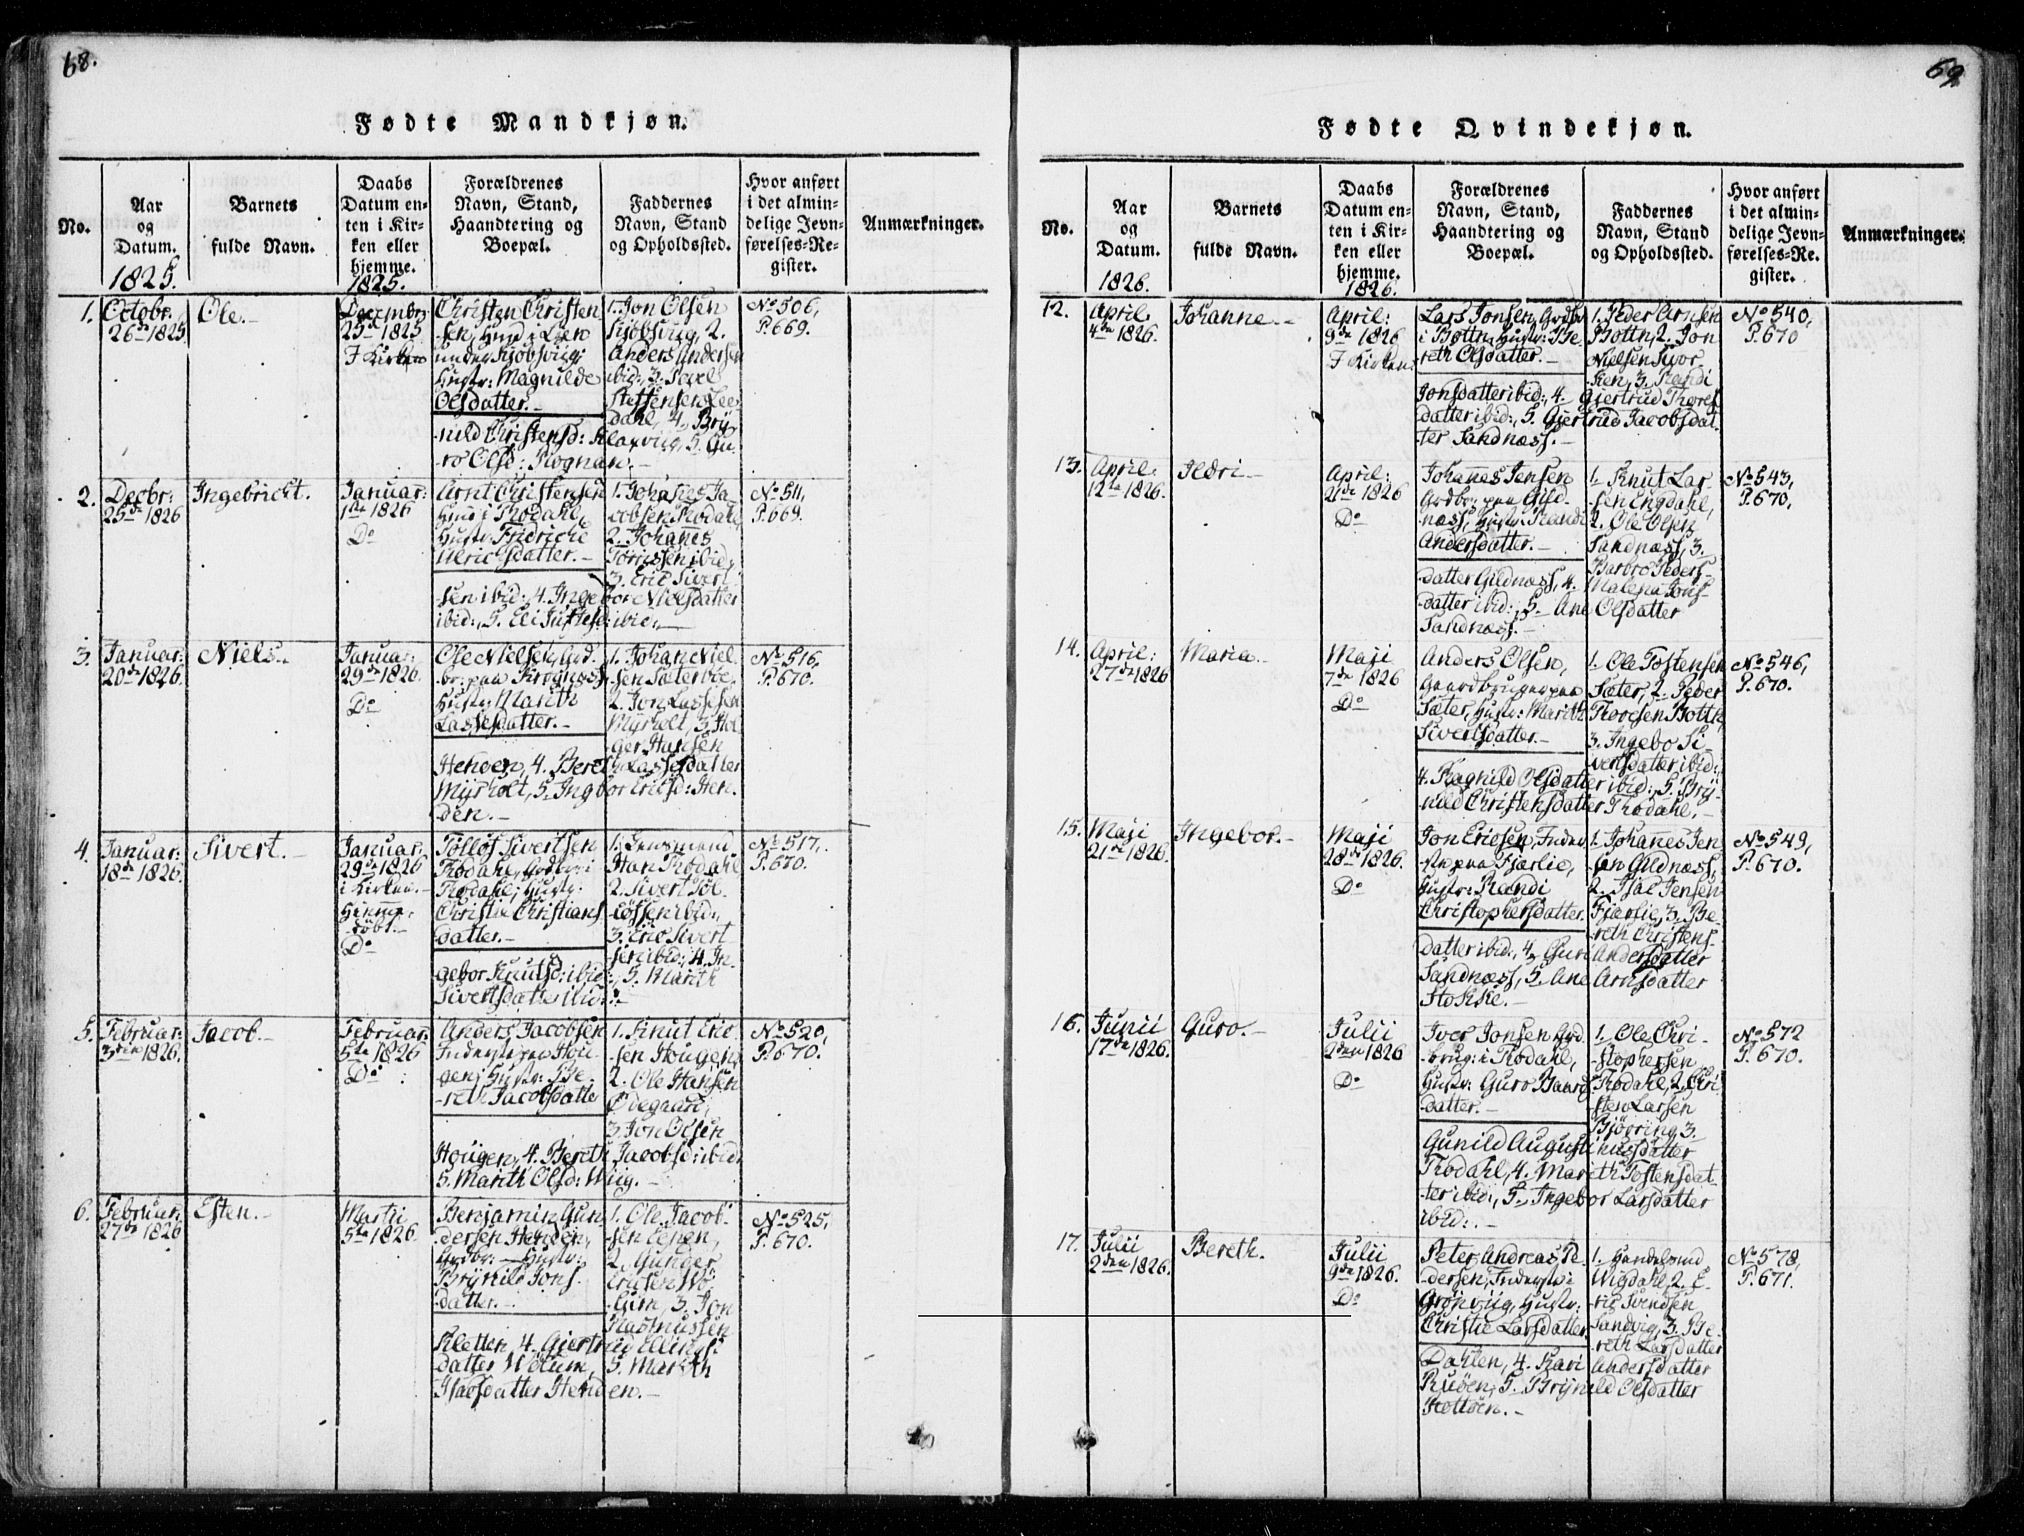 68.
Fødte Mandkjøn.
No.
Aar
og
Datum.
1825.
Barnets
fulde Navn.
Daabs
Datum en-
ten i Kir-
ken eller
hjemme.
1825.
Forældrenes
Navn, Stand,
Haandtering og
Boepæl.
Faddernes
Navn, Stand
og Opholdssted.
Hvor anført
i det almin-
delige Jevn-
førelses-Re-
gister.
Anmærkninger.
1.
Octobr.
26de 1825
Ole.-
Decembr.
25de 1825
I Kirken
Christen Christen
sen, Huusmd i Lien
under Kjøbsviig;
Hustr: Magnilde
Olsdatter.-
1. Jon Olsen
Kjøbsviig, 2.
Anders Andersen
ibid: 3.
Steffensen Lee
dahl, 4. Bry
nild Christensd: Klaxviig, 5. Gu-
ro Olsd: Rognan.-
No 506,
P. 669.
2.
Decbr:
25de 1826
Ingebricht.
Januar:
1ste 1826
Do
Arnt Christensen
Huusmd i Trodahl,
Hustr: Fridriche
Ulrichsdatter.-
1. Johanes Ja-
cobsen Trodahl,
2. Johannes
ibid,
3. Eric Sivert
sen ibid: 4. Ingebor Nielsdatter
ibid:, 5. Eli ibid:,
No 511,
P. 669.
3.
Januar:
20de 1826.
Niels.
Januar:
29de 1826.
Do
Ole Nielsen, Grd.
br: paa Krognæss,
Hustr: Marith
Lassesdatter.-
1. Johan Niel
sen Sæterbøe,
2. Jon Lassesen
Myrholt, 3. Hol
ger Hansen
Henden, 4. Bereth Lassesdatter
Myrholt, 5. Ingbor Ericsd: Hen
den.-
No 516,
P. 670.
4.
Januar:
18de 1826.
Sivert.-
Januar:
29de 1826
i Kirken.-
Hjemme-
døbt.-
Do
Tollof Sivertsen
Trodahl, Grdbr: i
Trodahl; Hustr:
Christie Christians
datter.-
1. Lensmand
Han Trodahl
2. Sivert Tol
lofsen ibid:,
3. Eric Sivert
sen ibid:, 4. In-
gebor Knutsd: ibid:, 5. Marith
Sivertsdatter ibid:-
No 517,
P. 670.
5.
Februar:
3den 1826.
Jacob.-
Februar:
5te 1826
Do
Anders Jacobsen
Inderst paa Hou-
gen; Hustr: Be-
reth Jacobsdatter
1. Knut Eric
sen Hougen,
2. Ole Hansen
Ødegaard,
3. Jon Olsen
Hougen, 4. Bereth Jacobsd: ibid:
5. Marith Olsd: Wiig.-
No 520,
P. 670.
6.
Februar:
27de 1826
Esten.-
Martii
5te 1826.
Benjamin Gun
dersen Henden,
Grdbr: - Hustr:
Brynild Jons
datter.-
1. Ole Jacob
sen Eenen,
2. Gunder
Ericsen Wo
lum, 3. Jon
Rasmussen
Kletten, 4. Gjertrud Ellings
datter Wolum, 5. Marith
Isacsdatter Henden.-
No 525,
P. 670.
69
Fødte Qvindekjøn.
No.
Aar
og
Datum.
1826.
Barnets
fulde Navn.
Daabs
Datum en-
ten i Kir-
ken eller
hjemme.
1826.
Forældrenes
Navn, Stand,
Haandtering og
Boepæl.
Faddernes
Navn, Stand
og Opholdssted.
Hvor anført
i det almin-
delige Jevn-
førelses-Re-
gister.
Anmærkninger.
12.
April:
4de 1826.
Johanne.-
April:
9de 1826
I Kirken
Lars Jonsen, Grdbr
i Bottn, Hustr: Be
reth Olsdatter.
1. Peder Arnsen
Bottn, 2. Jon
Nielsen Svor
ken, 3. Randi
Jonsdatter ibid:, 4. Gjertrud Thores
datter ibid:, 5. Gjertrud Jacobsdat-
ter Sandnæss.-
No 540,
P. 670
13.
April:
12te 1826.
Sedri-
April:
21de 1826
Do
Johannes Jensen
Grdbr: paa Gild-
næss, Hustr: Randi
Andersdatter.-
1. Knut Lar
sen Engdahl,
2. Ole Olsen
Sandnæss, 3.
Barbro Peders
datter Gildnæss, 4. Malena Jons-
datter ibid:, 5. Ane Olsdatter
Sandnæss.-
No 543,
P. 670.
14.
April:
27de 1826
Maria.-
Maji
7de 1826
Do
Anders Olsen,
Gaardbruger paa
Sæter, Hustr: Marith
Sivertsdatter.-
1. Ole Tostensen
Sæter, 2. Peder
Bottn,
3. Ingebor Si
vertsdatter ibid:,
4. Ragnild Olsdatter ibid:, 5. Bry-
nild Christensdatter Trodahl.-
No 546,
P. 670.
15.
Maji
21de 1826.
Ingebor.-
Maji
28de 1826.
Do
Jon Ericsen, Inder
st paa Fjærlie,
Hustr: Randi
Christophersdatter.
1. Johannes Jen
sen Gildnæss,
2. Isac Jensen
Fjærlie, 3. Be-
reth Christens-
datter ibid:, 4. Guri Andersdatter
Sandnæss, 5. Ane Arnsdatter
Stokke.-
No 549,
P. 670.
16.
Junii
17de 1826.
Guro.-
Julii
2den 1826
Do
Iver Jonsen Grd
brug: i Trodahl,
Hustr: Guro Baards
datter.-
1. Ole Chri-
stophersen
Trodahl, 2. Chri
sten Larsen
Bjøvring, 3.
Gunild Augustinusdatter
Trodahl, 4. Marith Tostensdat-
ter ibid:, 5. Ingebor Larsdatter
ibid:.-
No 572
P. 670.
17.
Julii
2den 1826.
Bereth.
Julii
9de 1826.
Do
Peter Andreas Pe
dersen, Inderst i
Grønviig, Hustr:
Christie Larsdatter.
1. Handelsmd
Wigdahl, 2. E-
ric Svendsen
Sandvig, 3. Be-
reth Larsdatter
Dahlen, 4. Kari Andersdatter
Ruøen, 5. Brynild Olsdatter
No 578,
P. 671.